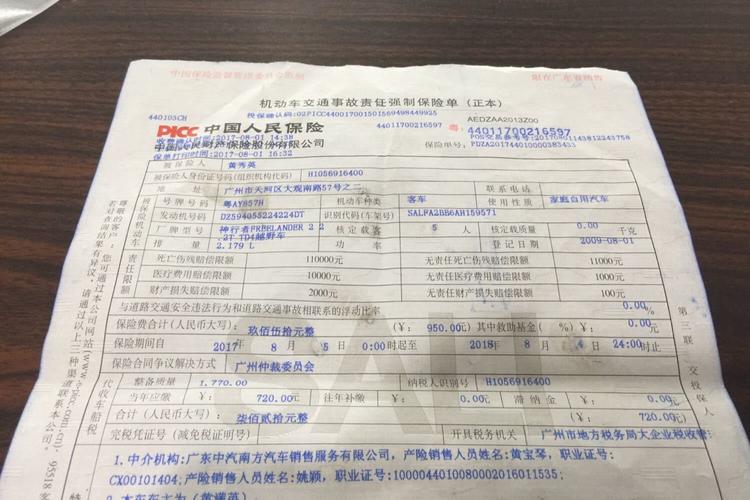 中国保险监督管理委员会监制
限在广东省销售
机动车交通事故责任强制保险单 (正本)
440103CH
投保确认码:02PICC440017001501569498449925
AEDZAA2013Z00
PICC 中国人民保险
号: 44011700216597
收费确认时间:2017-08-01 14:38
POS交易参考号:20170801143812243758
中国人民财产保险股份有限公司
保险单号: PDZA201744010000383433
保单打印时间:2017-08-01 16:32
被保险人 黄秀英
被保险人身份证号码(组织机构代码) H1056916400
地 址 广州市天河区大观南路57号之二 联系电话
号牌号码 粤AY857H 机动车种类 客车 使用性质 家庭自用汽车
发动机号码 DZ594055224224DT 识别代码(车架号) SALFA2BB6AH159571
厂牌型号 神行者FRBELANDER 2 2 2T TD4越野车 核定载客 5 人 核定载质量 0.00 千克
排 量 2.179 L 功 率 登记日期 2009-08-01
死亡伤残赔偿限额 110000元 无责任死亡伤残赔偿限额 11000元
医疗费用赔偿限额 10000元 无责任医疗费用赔偿限额 1000元
财产损失赔偿限额 2000元 无责任财产损失赔偿限额 100元
被保险机动车
责任限额
与道路交通安全违法行为和道路交通事故相联系的浮动比率 0.00 %
保险费合计(人民币大写): 玖佰伍拾元整 (¥: 950.00元) 其中救助基金( %)¥: 0.00 元
保险期间自 2017 年 8 月 5 日 0:00 时起至 2018 年 8 月 4 日 24:00 时止
保险合同争议解决方式 广州仲裁委员会
代收车船税
整备质量 1,770.00 纳税人识别号 H1056916400
当年应缴 ¥: 720.00元 往年补缴 ¥: 0.00元 滞纳金 ¥: 0.00 元
合计(人民币大写): 柒佰贰拾元整 (¥: 720.00元)
完税凭证号(减免税证明号) 开具税务机关 广州市地方税务局大企业税收管
1.中介机构:广东中汽南方汽车销售服务有限公司,产险销售人员姓名:黄宝琴,职业证号:
CX00101404;产险销售人员姓名:姚颖,职业证号:1000044010080002016011535;
尊敬的客户:您可通过本公司网站(www.e-picc.com.cn)、95518客
若对查询结果有异议,请通过以上三种渠道联系本公司。
第三联 交投保人